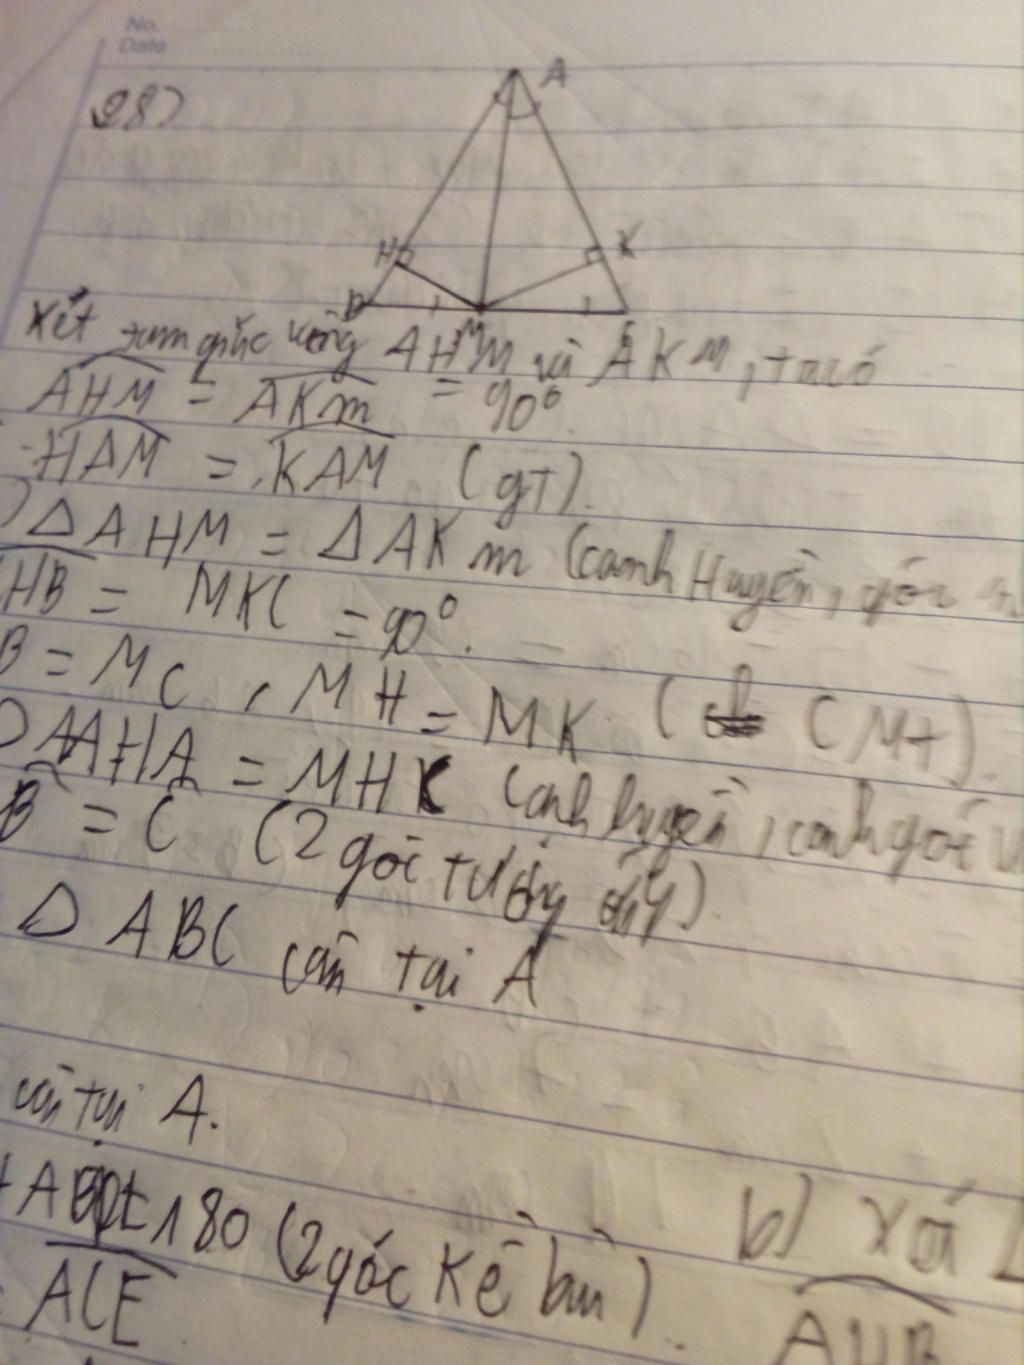 No.
Date
98)
A
H
K
B
M
Xét tam giác vuông AHM và AKM, ta có
AHM = AKm = 90°.
HAM = KAM (gT).
) Δ AHM = Δ AKm (cạnh Huyền, góc
HB = MKC = 90°.
B = MC, MH = MK (CMT).
AHA = MHK (cạnh huyền, cạnh góc v
B = C (2 góc tương ứng)
Δ ABC cân tại A
cân tại A.
+ 180 (2 góc Kề bù).
ACE
b) Xét Δ
AHB